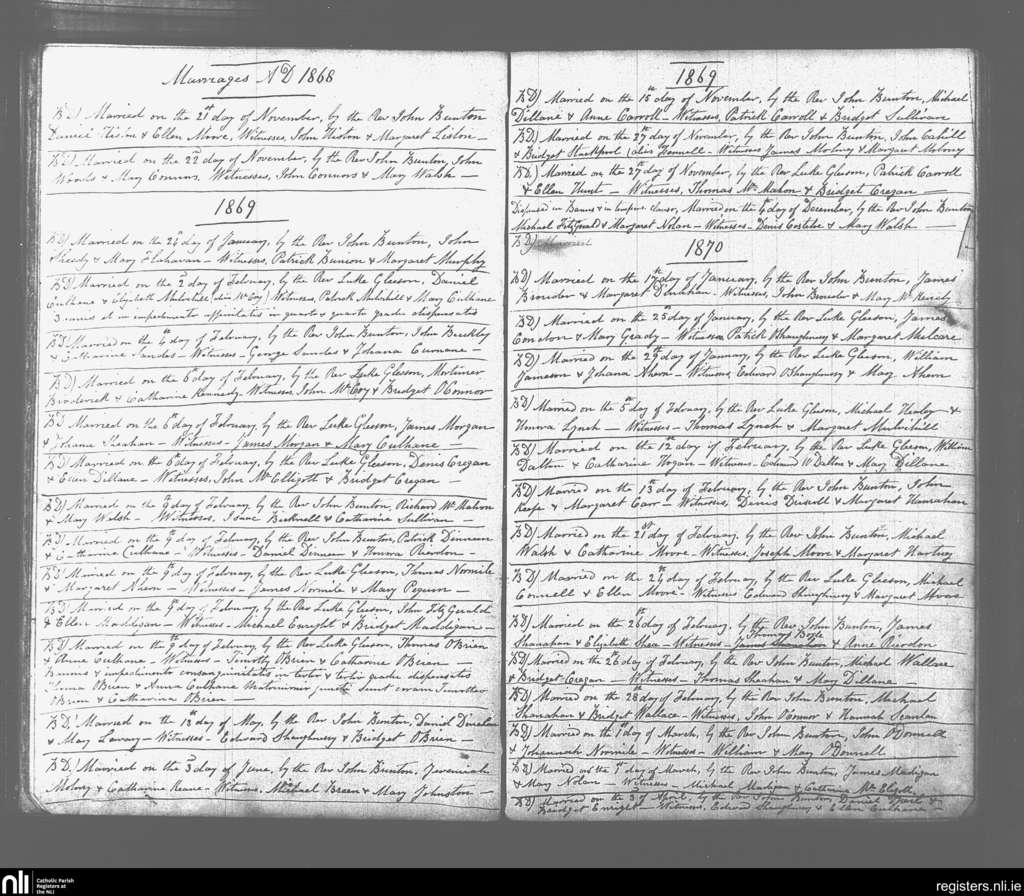 Marriages AD 1868
BD) Married on the 21st day of November, by the Rev John Bunton
Daniel & Ellen Moore, Witnesses, John & Margaret Liston —
BD) Married on the 22d day of November, by the Rev John Bunton, John
Woods & Mary Connors, Witnesses, John Connors & Mary Walsh —
1869
BD) Married on the 24th day of January, by the Rev John Bunton, John
Sheedy & Mary Flahavan — Witnesses, Patrick & Margaret Murphy
BD) Married on the 2d day of February, by the Rev Luke Gleeson, Daniel
Culhane & Elizabeth Mulvihill alias McCoy / Witnesses, Patrick Mulvihill & Mary Culhane
3 bannis et in impedimento affinitatis in quarto & quarto gradu dispensatis
BD) Married on the 4th of February, by the Rev John Bunton, John Buckley
& Catharine Sandes — Witnesses — George Sandes & Johana Cunnane —
BD) Married on the 6th day of February, by the Rev Luke Gleeson, Mortimer
Broderick & Catharine Kennedy — Witnesses, John McCoy & Bridget OConnor
BD) Married on the 6th day of February, by the Rev Luke Gleeson, James Morgan
& Johana Sheahan — Witnesses — James Morgan & Mary Culhane —
BD) Married on the 8th day of February, by the Rev Luke Gleeson, Denis Cregan
& Ellen Dillane — Witnesses, John McElligott & Bridget Cregan —
BD) Married on the 9th day of February, by the Rev John Bunton, Richard McMahon
& Mary Walsh — Witnesses, Isaac Bicknell & Catharine Sullivan —
BD) Married on the 9th day of February, by the Rev John Bunton, Patrick Dinneen
& Catharine Culhane — Witnesses — Daniel Dinneen & Honora Riordon —
BD) Married on the 9th day of February, by the Rev Luke Gleeson, Thomas Normile
& Margaret Ahern — Witnesses — James Normile & Mary —
BD) Married on the 9th day of February, by the Rev Luke Gleeson, John FitzGerald
& Ellen Maddigan — Witnesses — Michael Enright & Bridget Maddigan —
BD) Married on the 9th day of February, by the Rev Luke Gleeson, Thomas OBrien
& Anne Culhane — Witnesses — Timothy OBrien & Catharine OBrien —
Bannis & impedimento consanguinitatis in tertio & tertio gradu dispensatis
Thoma OBrien & Anna Culhane Matrimonio juncti sunt coram Timotheo
OBrien & Catharina OBrien —
BD) Married on the 18th day of May, by the Rev John Bunton, David
& Mary — Witnesses — Edward Shaughnessy & Bridget OBrien —
BD) Married on the 3d day of June, by the Rev John Bunton, Jeremiah
Molony & Catharine Keane — Witness, Michael Breen & Mary Johnston —
1869
BD) Married on the 15th day of November, by the Rev John Bunton, Michael
Dillane & Anne Carroll — Witnesses, Patrick Carroll & Bridget Sullivan
BD) Married on the 27th day of November, by the Rev John Bunton, John Cahill
& Bridget Stackpool alias Fennell — Witnesses James Molony & Margaret Molony
BD) Married on the 27th day of November, by the Rev Luke Gleeson, Patrick Carroll
& Ellen Hunt — Witnesses, Thomas McMahon & Bridget Cregan —
Dispensed in Bannis & in tempore clauso, Married on the day of December, by the Rev John Bunton
Michael Fitzgerald & Margaret Nolan — Witnesses — Denis Costeloe & Mary Walsh —
BD) Married
1870
BD) Married on the 17th day of January, by the Rev John Bunton, James
Brouder & Margaret — Witnesses, John Brouder & Mary
BD) Married on the 25th day of January, by the Rev Luke Gleeson, James
Condon & Mary Grady — Witnesses Patrick Shaughnessy & Margaret Mulcare
BD) Married on the 29th day of January, by the Rev Luke Gleeson, William
Jameson & Johana Ahern — Witness, Edward OShaughnessy & Mary Ahern
BD) Married on the 5th day of February, by the Rev Luke Gleeson, Michael Healey &
Honora Lynch — Witnesses — Thomas Lynch & Margaret Mulvihill
BD) Married on the 12th day of February, by the Rev Luke Gleeson, William
Dalton & Catharine Hogan — Witness — Edmund Dalton & Mary Dillane
BD) Married on the 13th day of February, by the Rev John Bunton, John
Keefe & Margaret Carr — Witnesses, Denis Driscoll & Margaret Hanrahan
BD) Married on the 21st day of February, by the Rev John Bunton, Michael
Walsh & Catharine Moore — Witness, Joseph Moore & Margaret Hartney
BD) Married on the 24th day of February, by the Rev Luke Gleeson, Michael
Connell & Ellen Moore — Witnesses Edward Shaughnessy & Margaret Moore
BD) Married on the 26th day of February, by the Rev John Bunton, James
Thomas Boyle
Shanahan & Elizabeth Shea — Witnesses — James Shanahan & Anne Riordon
BD) Married on the 26th day of February, by the Rev John Bunton, Michael Wallace
& Bridget Cregan — Witnesses — Thomas Sheahan & Mary Dillane —
BD) Married on the 28th day of February, by the Rev John Bunton, Michael
Shanahan & Bridget Wallace — Witnesses, John OConnor & Hannah Scanlan
BD) Married on the 1st day of March, by the Rev John Bunton, John ODonnell
& Johannah Normile — Witnesses — William & Mary ODonnell
BD) Married on the 1st day of March, by the Rev John Bunton, James Madigan
& Mary Nolan — Witnesses — Michael Madigan & Catharine McElligott
BD) Married on the 3d of April, by the Rev John Bunton, Daniel &
Bridget Enright — Witnesses, Edward Shaughnessy & Ellen Culhane
nli
Catholic Parish
Registers at
the NLI
registers.nli.ie